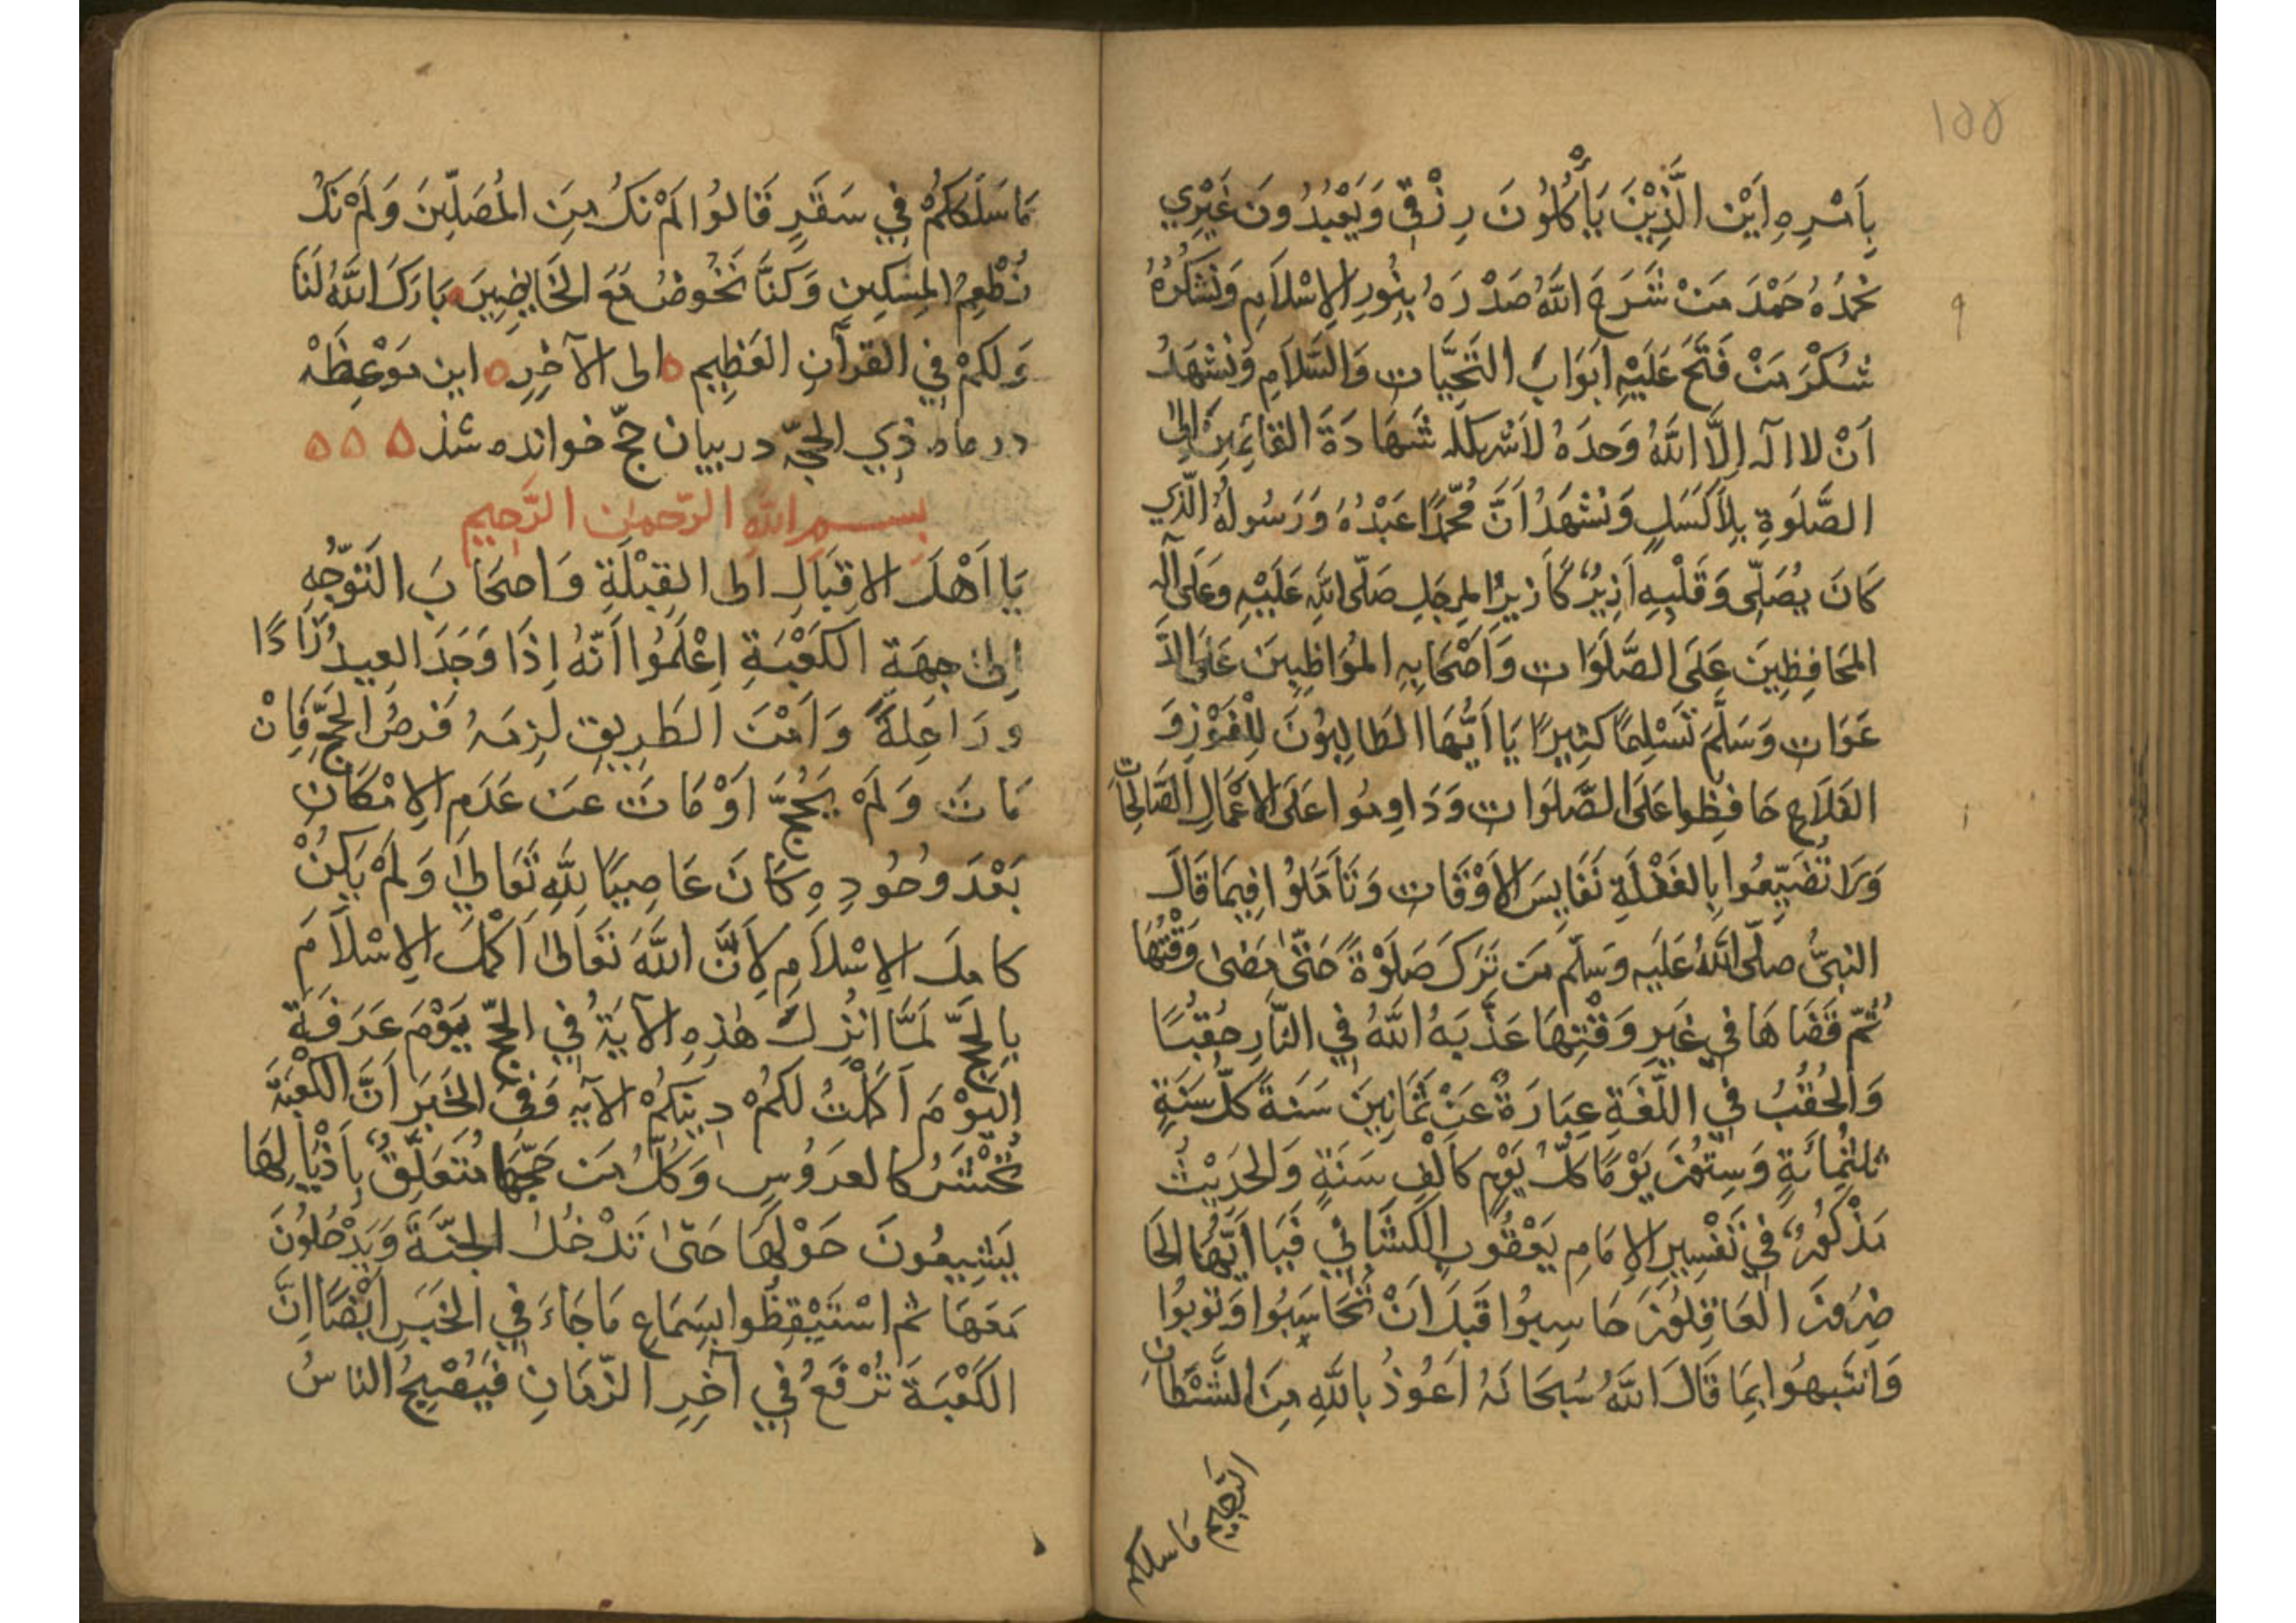 ١٥٥
بِاَسْرِهِ اَيْنَ الَّذِيْنَ يَأْكُلُونَ رِزْقِي وَيَعْبُدُونَ غَيْرِي
نَحْمَدُهُ حَمْدَ مَنْ شَرَحَ اللَّهُ صَدْرَهُ بِنُورِ الاِسْلَامِ وَنَشْكُرُهُ
شُكْرَ مَنْ فَتَحَ عَلَيْهِ اَبْوَابَ التَّحِيَّاتِ وَالسَّلَامِ وَنَشْهَدُ
اَنْ لا الَهَ اِلَّا اللَّهُ وَحدَهُ لاَشريكَ له شَهَادَةَ القَائِمِينَ اِلىَ
الصَّلَوةِ بِلاَ كَسَلٍ وَنَشْهَدُ اَنَّ مُحَمَّدًا عَبْدُهُ وَرَسُولُهُ الَّذِي
كَانَ يُصَلِّى وَقَلْبِهِ اَزِيرٌ كَاَزِيرِ المِرجَلِ صَلّى اللَّهِ عَلَيْهِ وَعَلَى آلِهِ
المحَافِظِينَ عَلَى الصَّلَوَاتِ وَاَصْحَابِهِ المُوَاظِبِينَ عَلَى الدَّ
عَوَاتِ وَسَلَّمَ تَسْلِيمًا كَثِيرًا يَا اَيُّهَا الطَالِبُونَ لِلْفَوْزِ وَ
الفَلَاحِ حَافِظُوا عَلَى الصَّلوَاتِ وَدَاوِمُوا عَلَى الاَعْمَالِ الصَّالِحَاتِ
وَلاَ تُضَيِّعُوا بِالغَفْلَةِ نَفَايِسَ الاَوْقَاتِ وَتَأَمَّلُوا فِيمَا قَالَ
النبِىُّ صلّى اللَّهُ عَلَيهِ وَسَلّم مَن تَرَكَ صَلَوْةً حَتّىٰ مَضىٰ وَقْتُهَا
ثُمّ قَضَاهَا فِي غَيرِ وَقْتِهَا عَذَّبَهُ اللَّهُ فِي النَّارِ حُقْبًا
وَالحُقُبُ فِي اللُّغَةِ عِبَارَةٌ عَنْ ثَمَانِينَ سَنَةً كُلّ سَنَةٍ
ثلثمِائَةٍ وَسِتُّونَ يَوْمًا كلُّ يَوْمٍ كَاَلْفِ سَنَةٍ وَالحَدِيْثُ
مَذْكُورٌ فِي تَفْسِيرِ الاِمَامِ يَعْقُوبِ الكَشَانِي فَيَا اَيُّهَا الحَا
ضِرُونَ العَاقِلُونَ حَاسِبُوا قَبلَ اَنْ تُحَاسَبُوا وَتُوبُوا
وَانْتَبِهُوا بِمَا قَالَ اللَّهُ سُبحَانَهُ اَعُوذُ بِاللَّهِ مِنَ الشَّيْطَانِ
الرَّجِيمِ مَا سلككم
مَا سَلَكَكُمْ فِي سَقَرٍ قَالُوا لَمْ نَكُ مِنَ المُصَلِّينَ وَلَمْ نَكُ
نُطْعِمُ المِسكِينَ وَكنَّا نَخُوضُ مَعَ الخَايِضِينَ بَارَكَ اللَّهُ لَنَا
وَلَكُمْ فِي القرآنِ العَظِيم ه الى الآخِرِه این مَوْعِظَه
در ماه ذِي الحِجّه در بیان حجّ خوانده شد ه ه ه
بسم اللّهِ الرّحمٰن الرَّحِيمِ
يَا اَهْلَ الاِقبَالِ الى القِبْلَةِ وَاَصحَابَ التَوَجُّهِ
اِلىٰ جِهَةِ الكَعْبَةِ اِعْلَمُوا اَنّهُ اِذَا وَجَدَ العبدُ زَادًا
وَرَاحِلَةً وَاَمْنَ الطَرِيقِ لَزِمَهُ فَرضُ الحَجِّ فَاِنْ
مَاتَ وَلَمْ يَحُجَّ اَوْ مَاتَ عَن عَدَمِ الاِمْكَانِ
بَعْدَ وُجُودِهِ كَانَ عَاصِيًا لِلّهِ تَعَالىٰ وَلَمْ يَكُنْ
كامِلَ الاِسْلاَمِ لاَنَّ اللَّهَ تَعَالىٰ اَكمَلَ الاِسْلاَمَ
بِالحَجِّ لَمَّا انزل هٰذِهِ الآيَةُ فِي الحَجّ يَوْمَ عَرَفَةَ
اليَوْمَ اَكْمَلْتُ لَكُمْ دِينَكُمْ الآيه وَفِى الخَبَرِ اَنَّ الكَعْبَةَ
تُحْشَرُ كالعَرُوسِ وَكُلُّ مَن حَجَّهَا مُتَعَلِّقٌ بِاَذْيَالِهَا
يَشِيعُونَ حَوْلَهَا حَتّىٰ تَدْخُلُ الجَنّةَ وَيَدْخُلُونَ
مَعَهَا ثم اسْتَيْقِظُوا بِسَمَاعِ مَا جَاءَ فِي الخَبَرِ اَيْضًا اِنَّ
الكَعْبَةَ تُرْفَعُ فِي آخِرِ الزّمَانِ فَيُصْبِحُ الناسُ